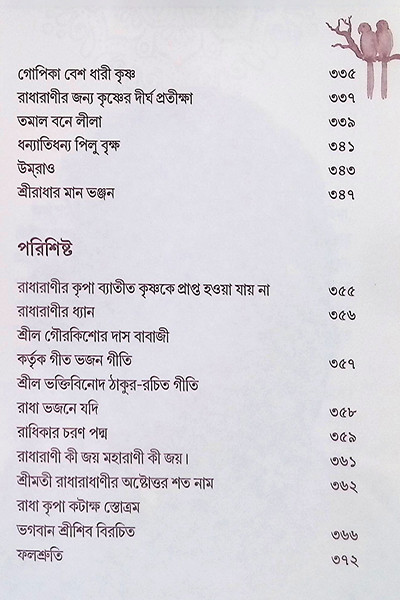 গোপিকা বেশ ধারী কৃষ্ণ ৩৩৫
রাধারাণীর জন্য কৃষ্ণের দীর্ঘ প্রতীক্ষা ৩৩৭
তমাল বনে লীলা ৩৩৯
ধন্যাতিধন্য পিলু বৃক্ষ ৩৪১
উম্‌রাও ৩৪৩
শ্রীরাধার মান ভঞ্জন ৩৪৭
পরিশিষ্ট
রাধারাণীর কৃপা ব্যাতীত কৃষ্ণকে প্রাপ্ত হওয়া যায় না ৩৫৫
রাধারাণীর ধ্যান ৩৫৬
শ্রীল গৌরকিশোর দাস বাবাজী
কর্তৃক গীত ভজন গীতি ৩৫৭
শ্রীল ভক্তিবিনোদ ঠাকুর-রচিত গীতি
রাধা ভজনে যদি ৩৫৮
রাধিকার চরণ পদ্ম ৩৫৯
রাধারাণী কী জয় মহারাণী কী জয়। ৩৬১
শ্রীমতী রাধারাধাণীর অষ্টোত্তর শত নাম ৩৬২
রাধা কৃপা কটাক্ষ স্তোত্রম
ভগবান শ্রীশিব বিরচিত ৩৬৬
ফলশ্রুতি ৩৭২